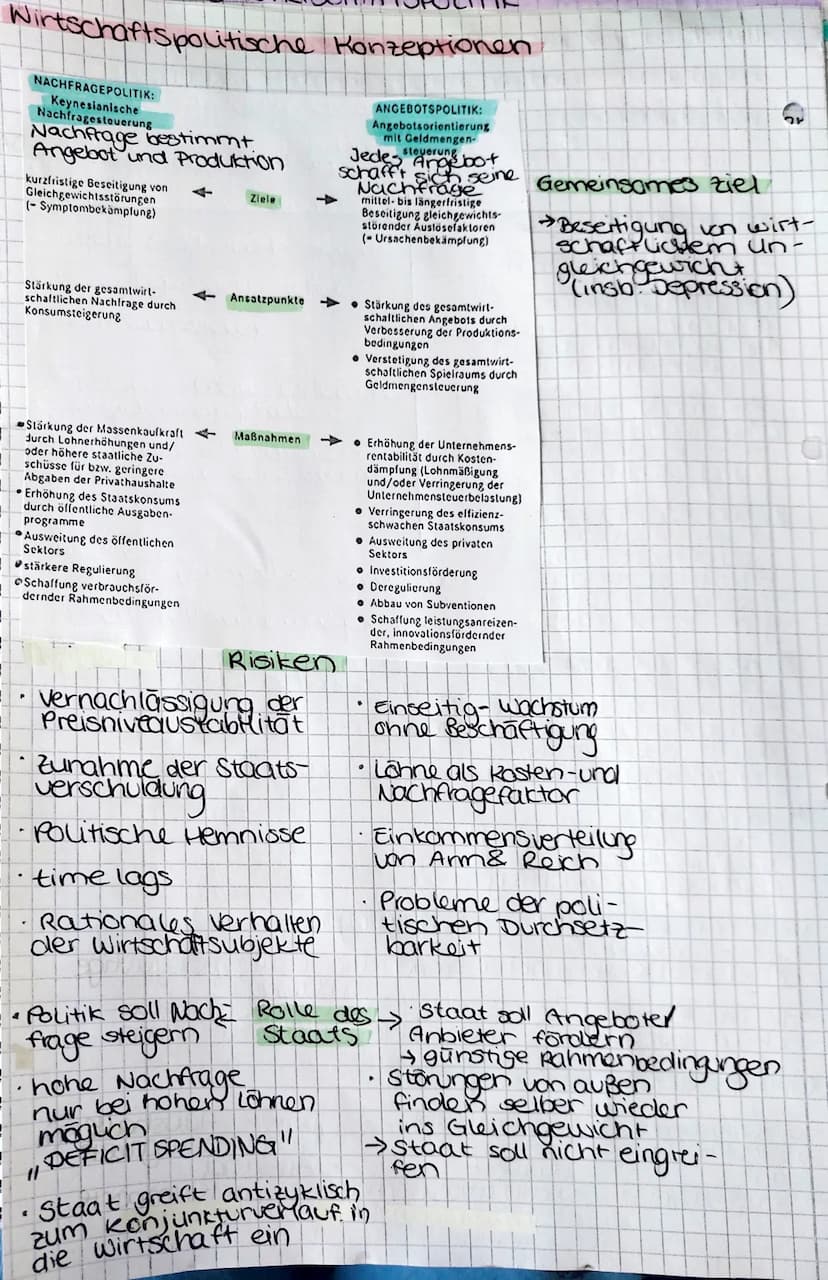 Wirtschaftspolitische Konzeptionen
NACHFRAGEPOLITIK:
Keynesianische
Nachfragesteuerung
Nachfrage bestimmt
Angebot und Produktion
ANGEBOTSPOLITIK:
Angebotsorientierung
mit Geldmengen-
steuerung
Jedes Angebot
schafft sich seine
Nachfrage
Gemeinsames Ziel
→ Beseitigung von wirt-
schaftlichem Un-
gleichgewicht
(insb. Depression)
kurzfristige Beseitigung von
Gleichgewichtsstörungen
(= Symptombekämpfung)
← Ziele →
mittel- bis längerfristige
Beseitigung gleichgewichts-
störender Auslösefaktoren
(= Ursachenbekämpfung)
Stärkung der gesamtwirt-
schaftlichen Nachfrage durch
Konsumsteigerung
← Ansatzpunkte →
• Stärkung des gesamtwirt-
schaftlichen Angebots durch
Verbesserung der Produktions-
bedingungen
• Verstetigung des gesamtwirt-
schaftlichen Spielraums durch
Geldmengensteuerung
• Stärkung der Massenkaufkraft
durch Lohnerhöhungen und/
oder höhere staatliche Zu-
schüsse für bzw. geringere
Abgaben der Privathaushalte
• Erhöhung des Staatskonsums
durch öffentliche Ausgaben-
programme
• Ausweitung des öffentlichen
Sektors
• stärkere Regulierung
• Schaffung verbrauchsför-
dernder Rahmenbedingungen
← Maßnahmen →
• Erhöhung der Unternehmens-
rentabilität durch Kosten-
dämpfung (Lohnmäßigung
und/oder Verringerung der
Unternehmensteuerbelastung)
• Verringerung des effizienz-
schwachen Staatskonsums
• Ausweitung des privaten
Sektors
• Investitionsförderung
• Deregulierung
• Abbau von Subventionen
• Schaffung leistungsanreizen-
der, innovationsfördernder
Rahmenbedingungen
Risiken
· Vernachlässigung der
Preisniveaustabilität
· Zunahme der Staats-
verschuldung
· Politische Hemnisse
· time lags
· Rationales Verhalten
der Wirtschaftsubjekte
· Einseitig- Wachstum
ohne Beschäftigung
· Löhne als Kosten- und
Nachfragefaktor
· Einkommensverteilung
von Arm & Reich
· Probleme der poli-
tischen Durchsetz-
barkeit
Rolle des
Staats
· Politik soll Nach-
frage steigern
· hohe Nachfrage
nur bei hohen Löhnen
möglich
„DEFICIT SPENDING"
· Staat greift antizyklisch
zum Konjunkturverlauf in
die Wirtschaft ein
→ · Staat soll Angebote/
Anbieter fördern
→ günstige Rahmenbedingungen
· Störungen von außen
finden selber wieder
ins Gleichgewicht
→ Staat soll nicht eingrei-
fen